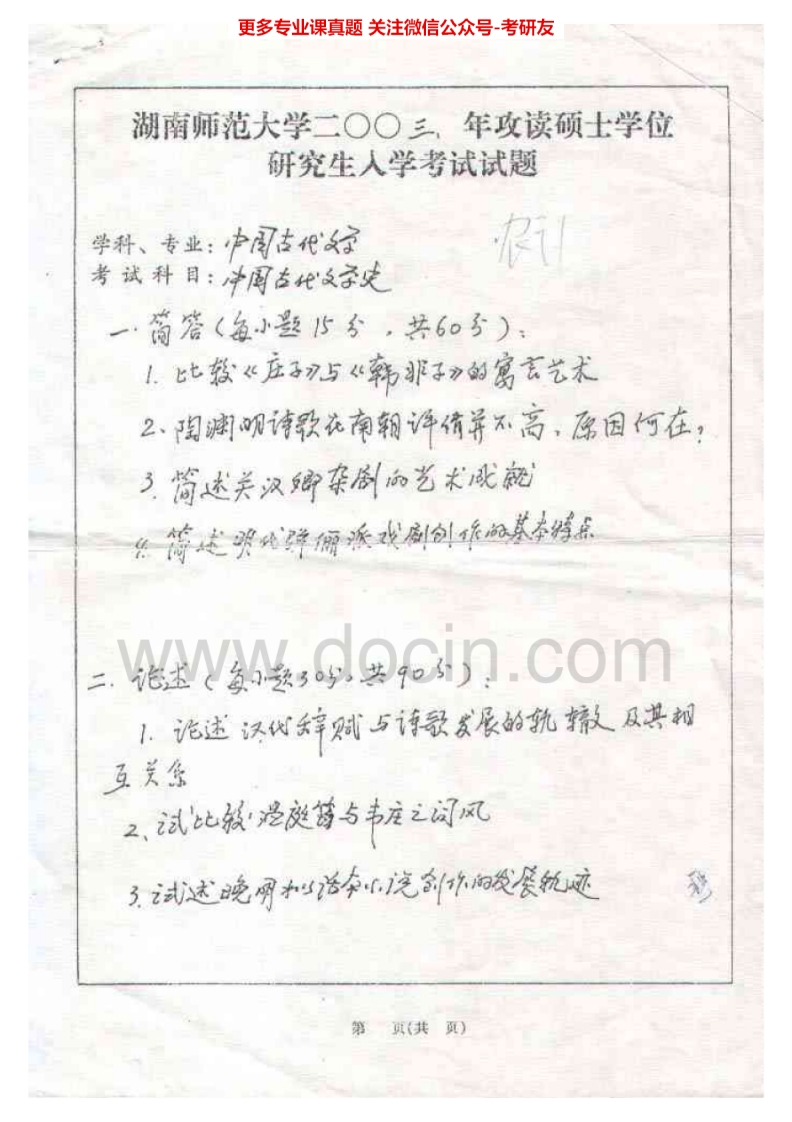 更多专业课真题 关注微信公众号-考研友
湖南师范大学二〇〇三、年攻读硕士学位
研究生入学考试试题
学科、专业：中国古代文学
考试科目：中国古代文学史
一. 简答（每小题15分，共60分）：
1. 比较《庄子》与《韩非子》的寓言艺术
2、陶渊明诗歌在南朝评价并不高、原因何在？
3. 简述关汉卿杂剧的艺术成就
4. 简述明代骈俪派戏剧创作的基本特点
www.docin.com
二. 论述（每小题30分，共90分）：
1. 论述汉代辞赋与诗歌发展的轨辙及其相
互关系
2、试比较温庭筠与韦庄之词风
3. 试述晚明拟话本小说创作的发展轨迹
第 页(共 页)